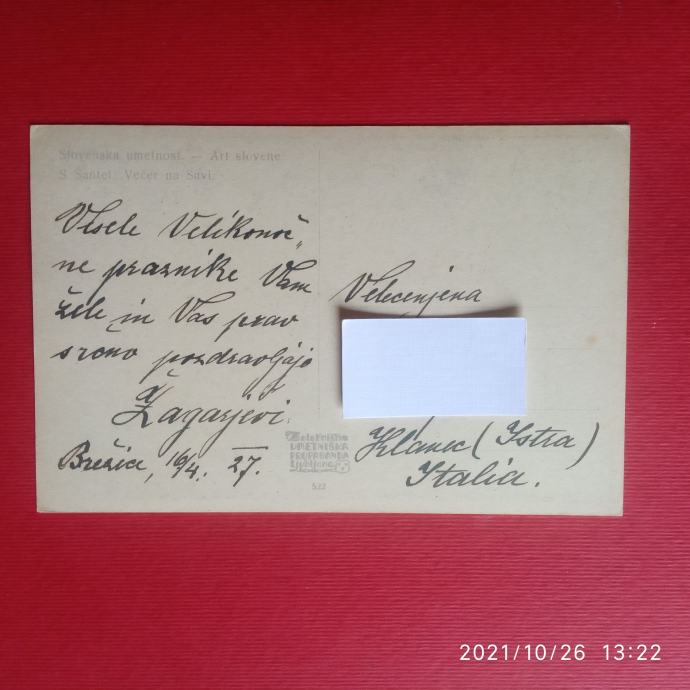 Slovenska umetnost. — Art slovene
S. Šantel: Večer na Savi.
Vesele Velikonoč„
ne praznike Vam
žele in Vas prav
srčno pozdravljajo
Žagarjevi.
Brežice, 16/4. 27.
Velecenjena
Klanec (Istra)
Italia.
UMETNIŠKA
PROPAGANDA
Ljubljana
522
2021/10/26 13:22